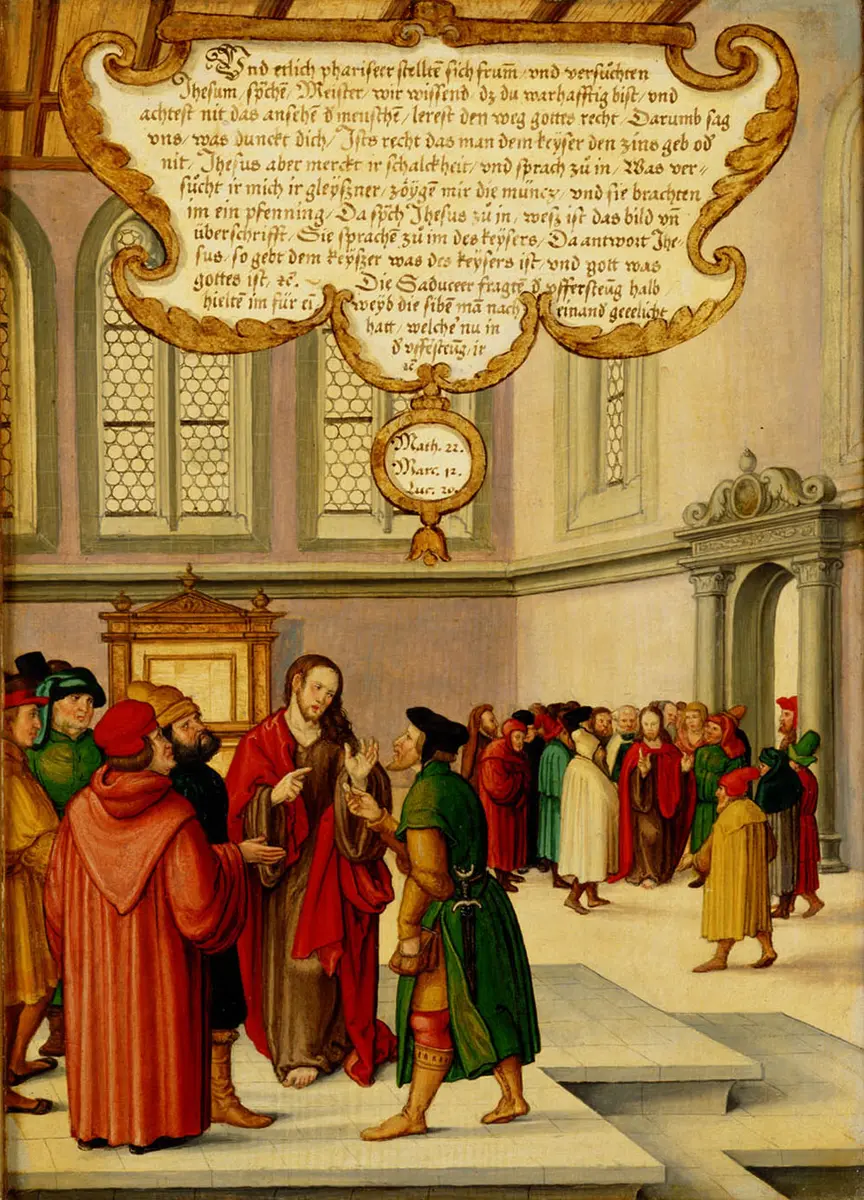 Und etlich phariseer stelltẽ sich frum̃ / vnd versůchten
Jhesum / sp̃chẽ / Meister / wir wissend / dz du warhafftig bist / vnd
achtest nit das ansehẽ đ mẽnschẽ / lerest den weg gottes recht / Darumb sag
vns / was dunckt dich / Ists recht das man dem keyser den zins geb ođ
nit / Jhesus aber merckt ir schalckheit / vnd sprach zů in / Was ver⸗
sůcht ir mich ir gleyszner / zöygẽ mir die müncz / vnd sie brachten
im ein pfenning / Da sp̃ch Jhesus zů in / wesz ist das bild vñ
überschrifft / Sie sprachẽ zů im des keysers / Da antwort Jhe⸗
sus / so gebt dem keyszer was des keysers ist / vnd gott was
gottes ist / ꝛc. Die Saduceer fragtẽ đ vffersteüg halb
hieltẽ im für eĩ weyb die sibẽ mã nach einanđ geeelicht
hatt / welche nu in
đ vffesteüg / ir
ꝛc
Math. 22.
Marc. 12.
Luc. 20.